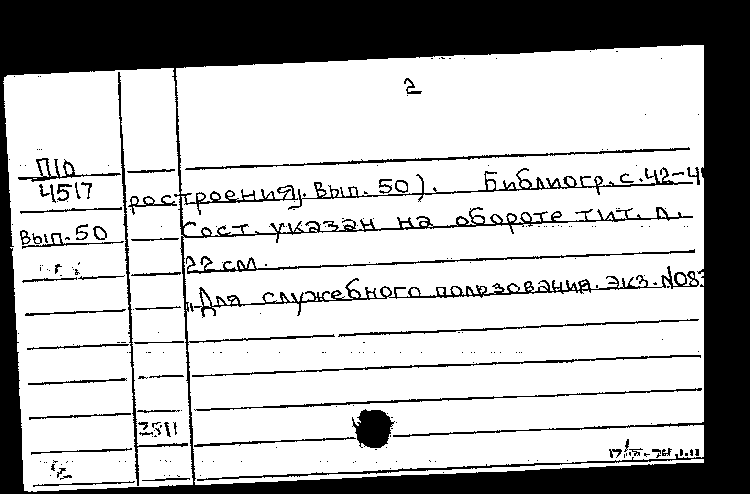 2
П10
4517
ростроения). Вып. 50). Библиогр. с. 42-4
Вып. 50
Сост. указан на обороте тит. л.
22 см.
„Для служебного пользования. экз. N083
2811